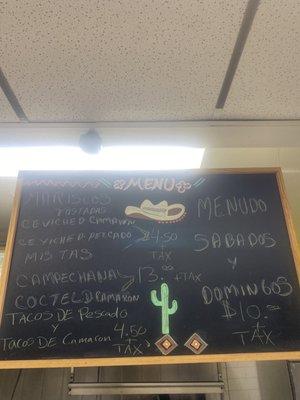 MENU
MARISCOS
TOSTADAS
CEVICHE D CAMARON
CEVICHE D PESCADO
4.50
TAX
MIS TAS
CAMPECHANA
13. + TAX
COCTEL D CAMARON
TACOS DE PESCADO
Y
TACOS DE CAMARON
4.50
TAX
MENUDO
SABADOS
Y
DOMINGOS
$10.00
+
TAX